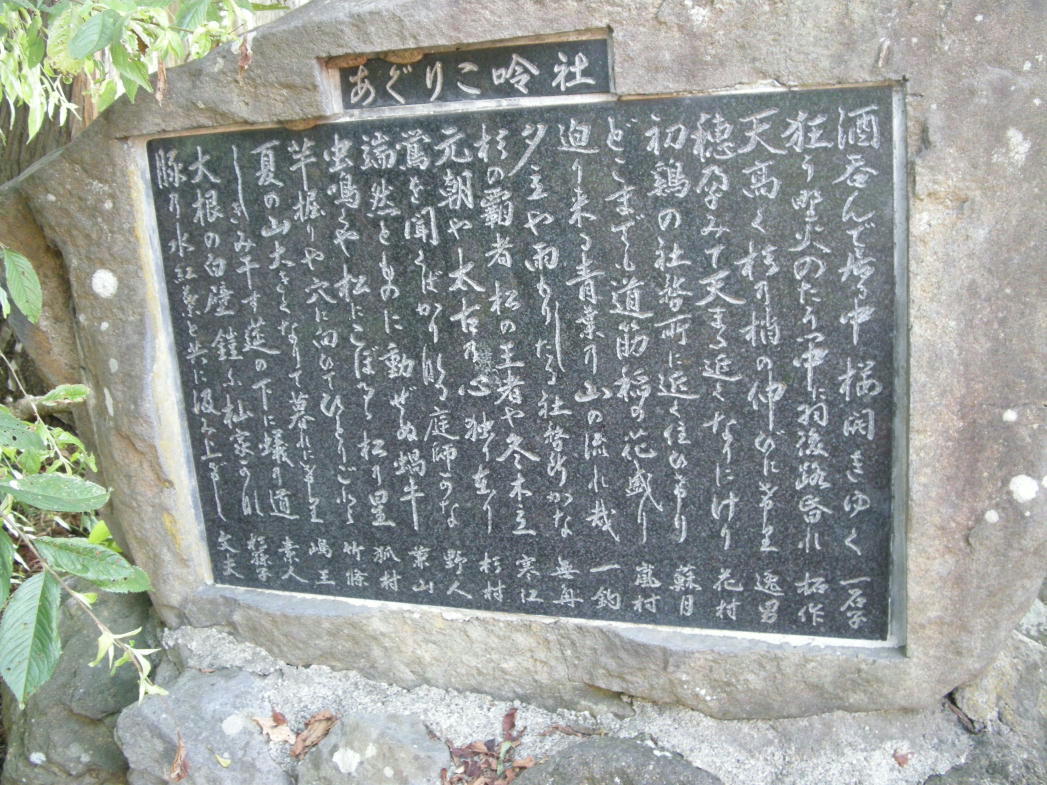 あぐりこ吟社
酒呑んで居る中桜開きゆく 一石子
狂う野火のたうつ中に羽後路昏れ 拓作
天高く杉の梢の伸びに 逸男
穂孕みて天まる近くなりにけり 花村
初鶏の社務所に近く住ひ居り 蘇月
どこまでも道筋稲の花盛り 嵐村
迫り来る青葉の山の流れ哉 一釣
夕立や雨もりしたる社務所かな 無舟
杉の覇者松の王者や冬木立 寒江
元朝や太古の心独り在り 杉村
鶯を聞くばかり 庭師かな 野人
端然ともの に動ぜぬ蝸牛 葉山
虫鳴くや松にこぼるる松の星 狐村
芋掘りや穴に向ひてひとりごと 竹條
夏の山大きくなりて暮れに 嶋王
しきみ干す莚の下に蟻の道 素人
大根の白壁 ふ杣家の
豚の水紅葉と共に汲み上げし 文夫